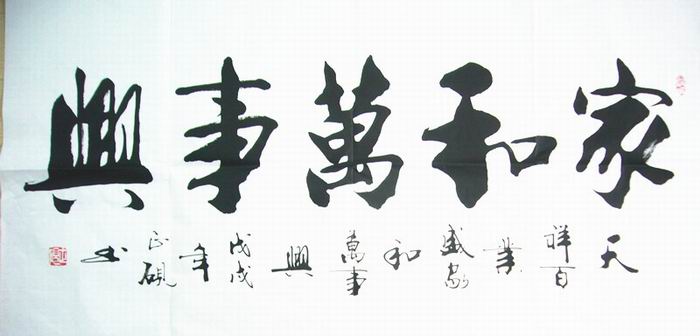 家和萬事興
天祥百業盛家和萬事興戊戌年正硯书